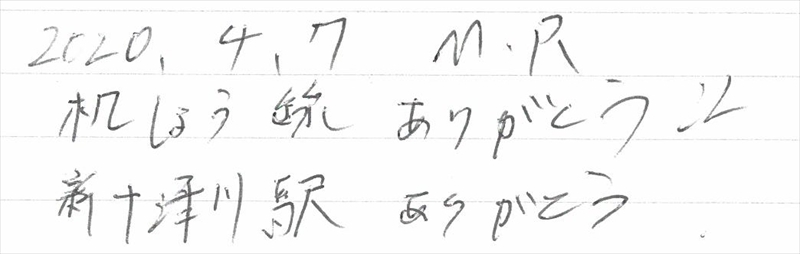 2020, 4, 7 M・R
札しょう線 ありがとう
新十津川駅 ありがとう.